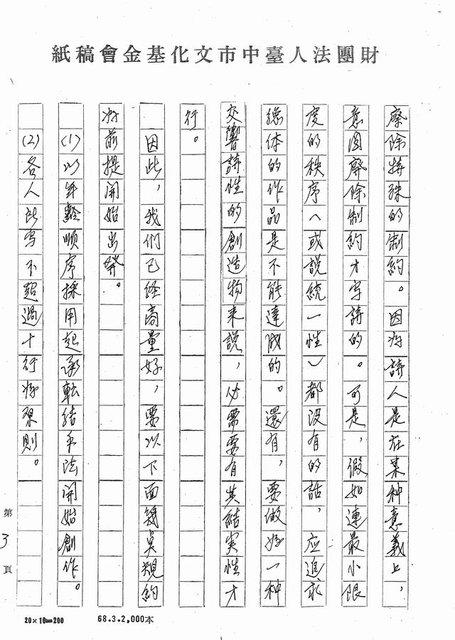 財團法人臺中市文化基金會稿紙
廢除特殊的制約。因為詩人是在某種意義上,
意圖廢除制約才寫詩的。可是,假如連最小限
度的秩序(或說統一性)都沒有的話,應追求
總体的作品是不能達成的。還有,要做為一種
交響詩性的創造物來說,必需要有其結実性才
行。
因此,我們已經商量好,要以下面幾莫規約
為前提開始出發。
(1)以年齡順序採用起承転結手法開始創作。
(2)各人此寫不超過十行為原則。
第3頁
20×10=200
68.3.2,000本